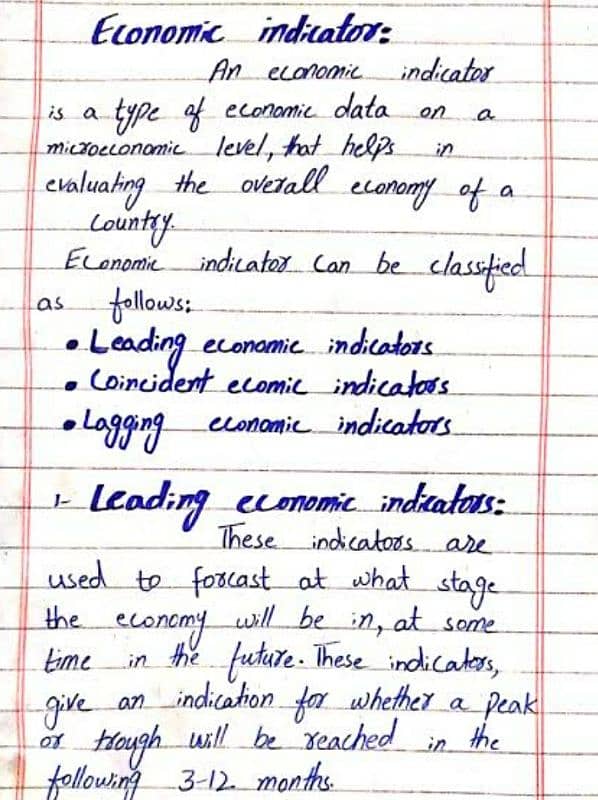 Economic indicator:
An economic indicator
is a type of economic data on a
microeconomic level, that helps in
evaluating the overall economy of a
country.
Economic indicator can be classified
as follows:
• Leading economic indicators
• Coincident ecomic indicators
• Lagging economic indicators
1- Leading economic indicators:
These indicators are
used to forcast at what stage
the economy will be in, at some
time in the future. These indicators,
give an indication for whether a peak
or trough will be reached in the
following 3-12 months.